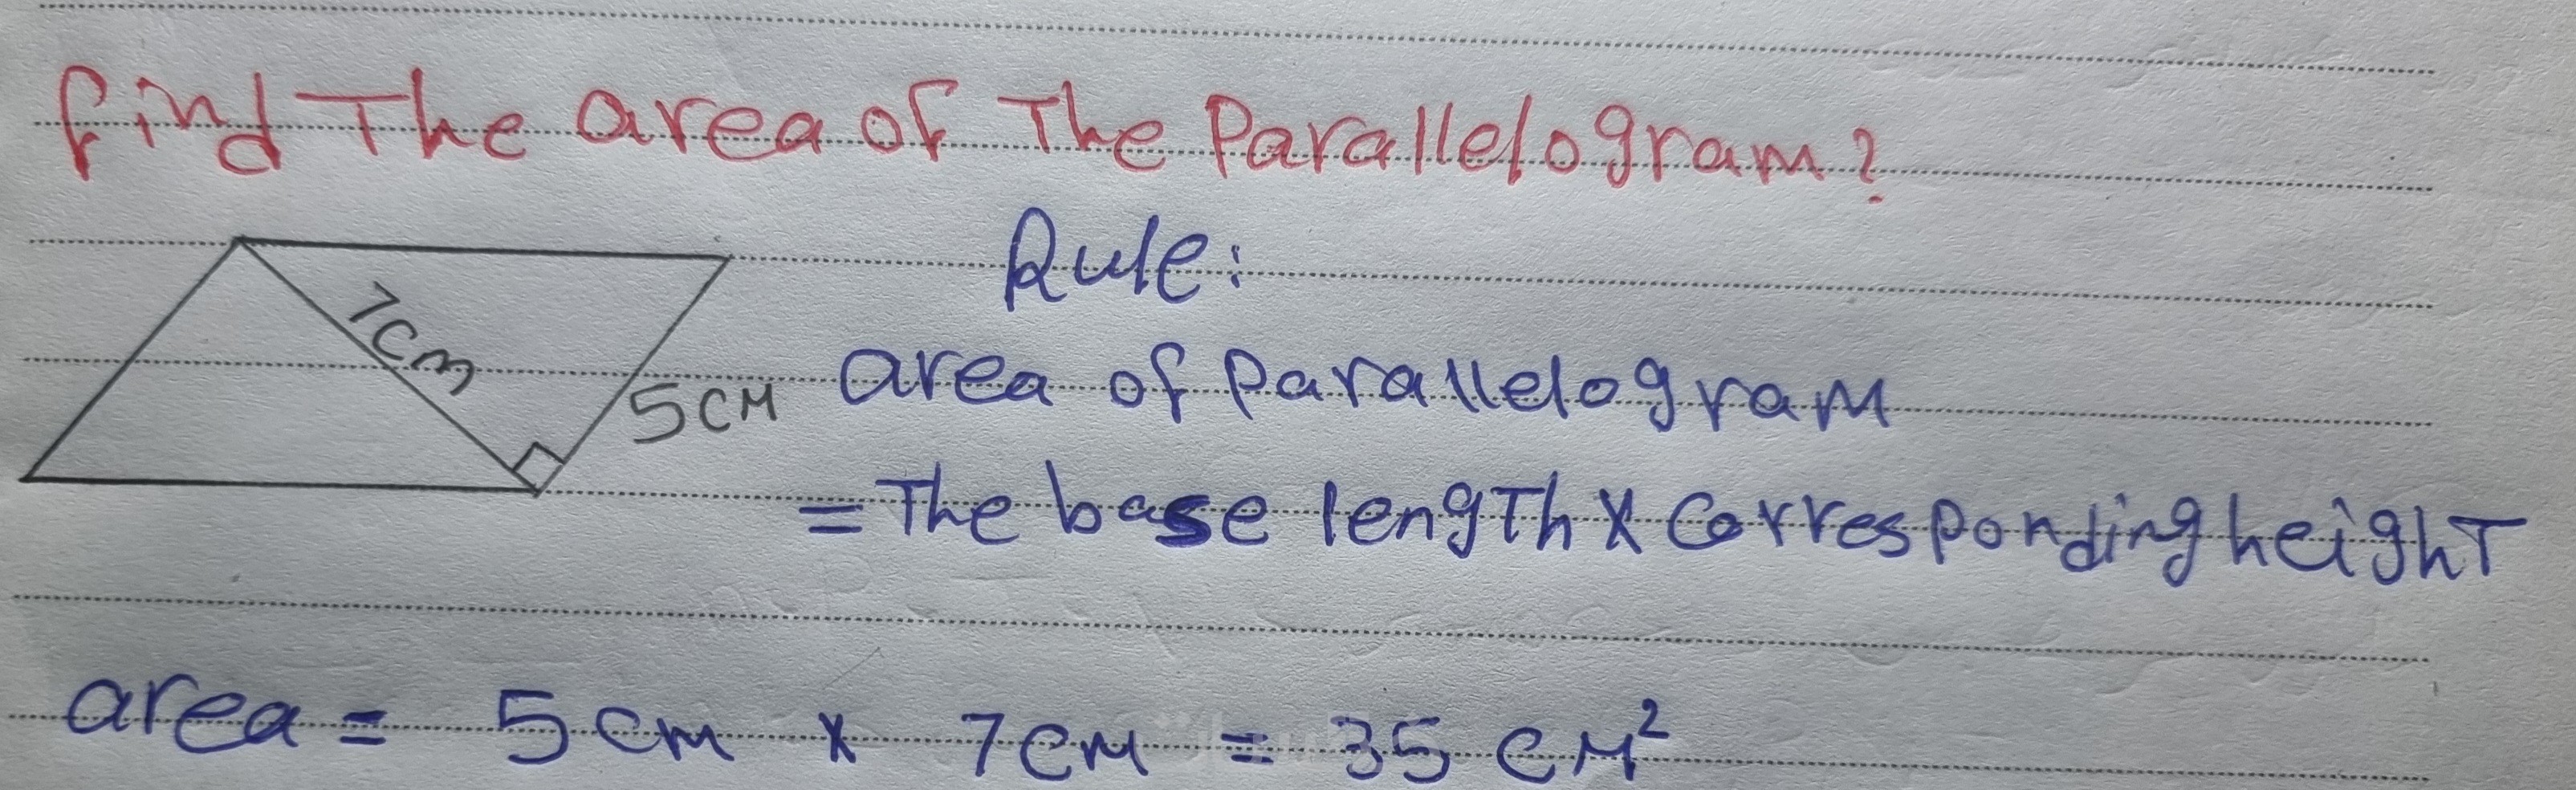 find The area of The Parallelogram?
Rule:
7cm
5cm
area of parallelogram
= The base length x corresponding height
area = 5cm x 7cm = 35 cm²